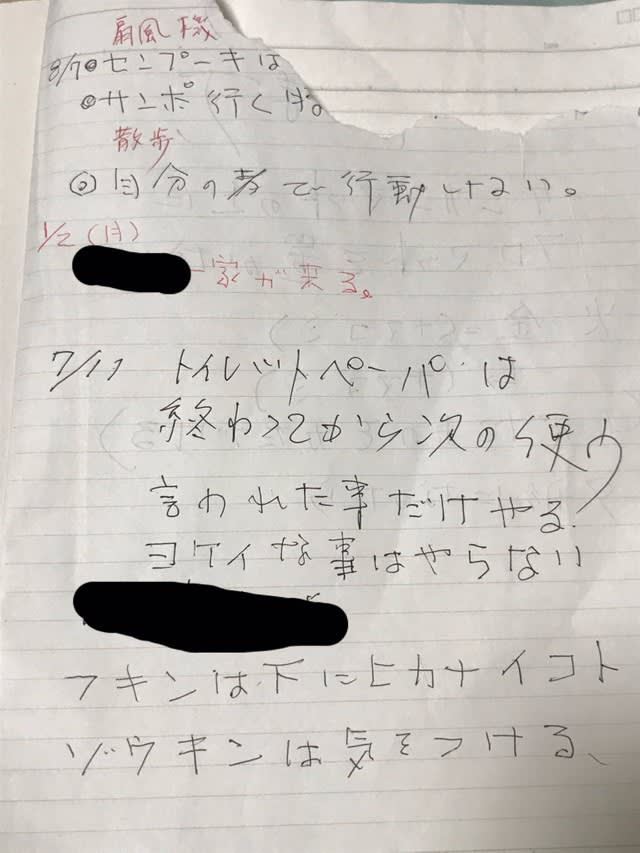 扇風機
8/7◎センプーキは
◎サンポ行く
散歩
◎自分の考で行動しない。
1/2(月)
一家が来る。
7/11 トイレットペーパは
終わってから次の使う
言われた事だけやる.
ヨケイな事はやらない
フキンは下にヒカナイコト
ゾウキンは気をつける、